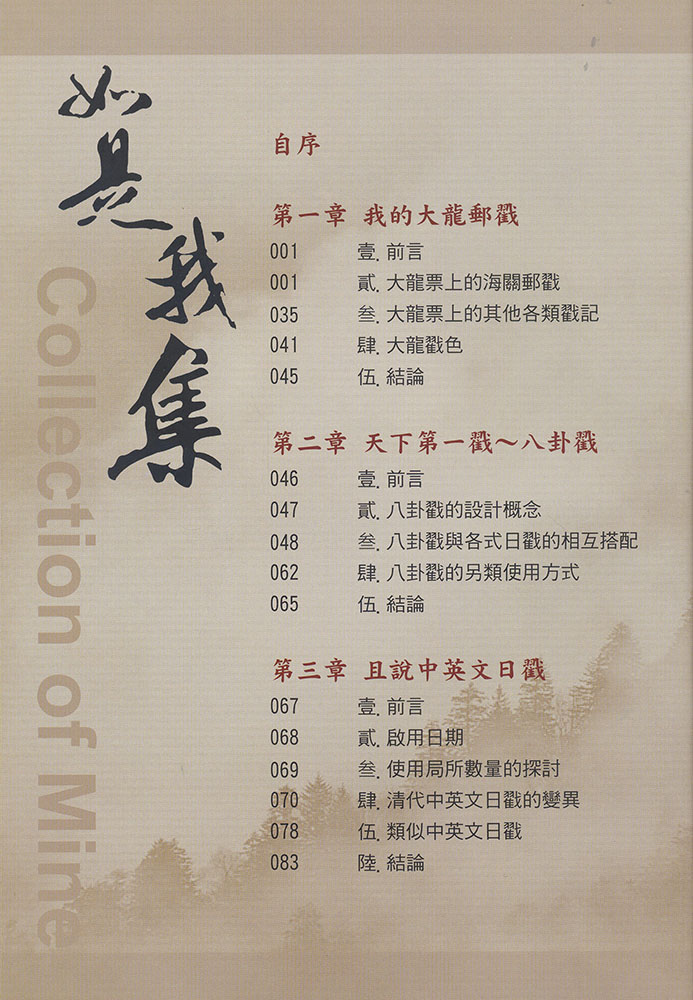 如是我集
Collection of Mine
自序
第一章 我的大龍郵戳
001 壹. 前言
001 貳. 大龍票上的海關郵戳
035 叁. 大龍票上的其他各類戳記
041 肆. 大龍戳色
045 伍. 結論
第二章 天下第一戳～八卦戳
046 壹. 前言
047 貳. 八卦戳的設計概念
048 叁. 八卦戳與各式日戳的相互搭配
062 肆. 八卦戳的另類使用方式
065 伍. 結論
第三章 且說中英文日戳
067 壹. 前言
068 貳. 啟用日期
069 叁. 使用局所數量的探討
070 肆. 清代中英文日戳的變異
078 伍. 類似中英文日戳
083 陸. 結論